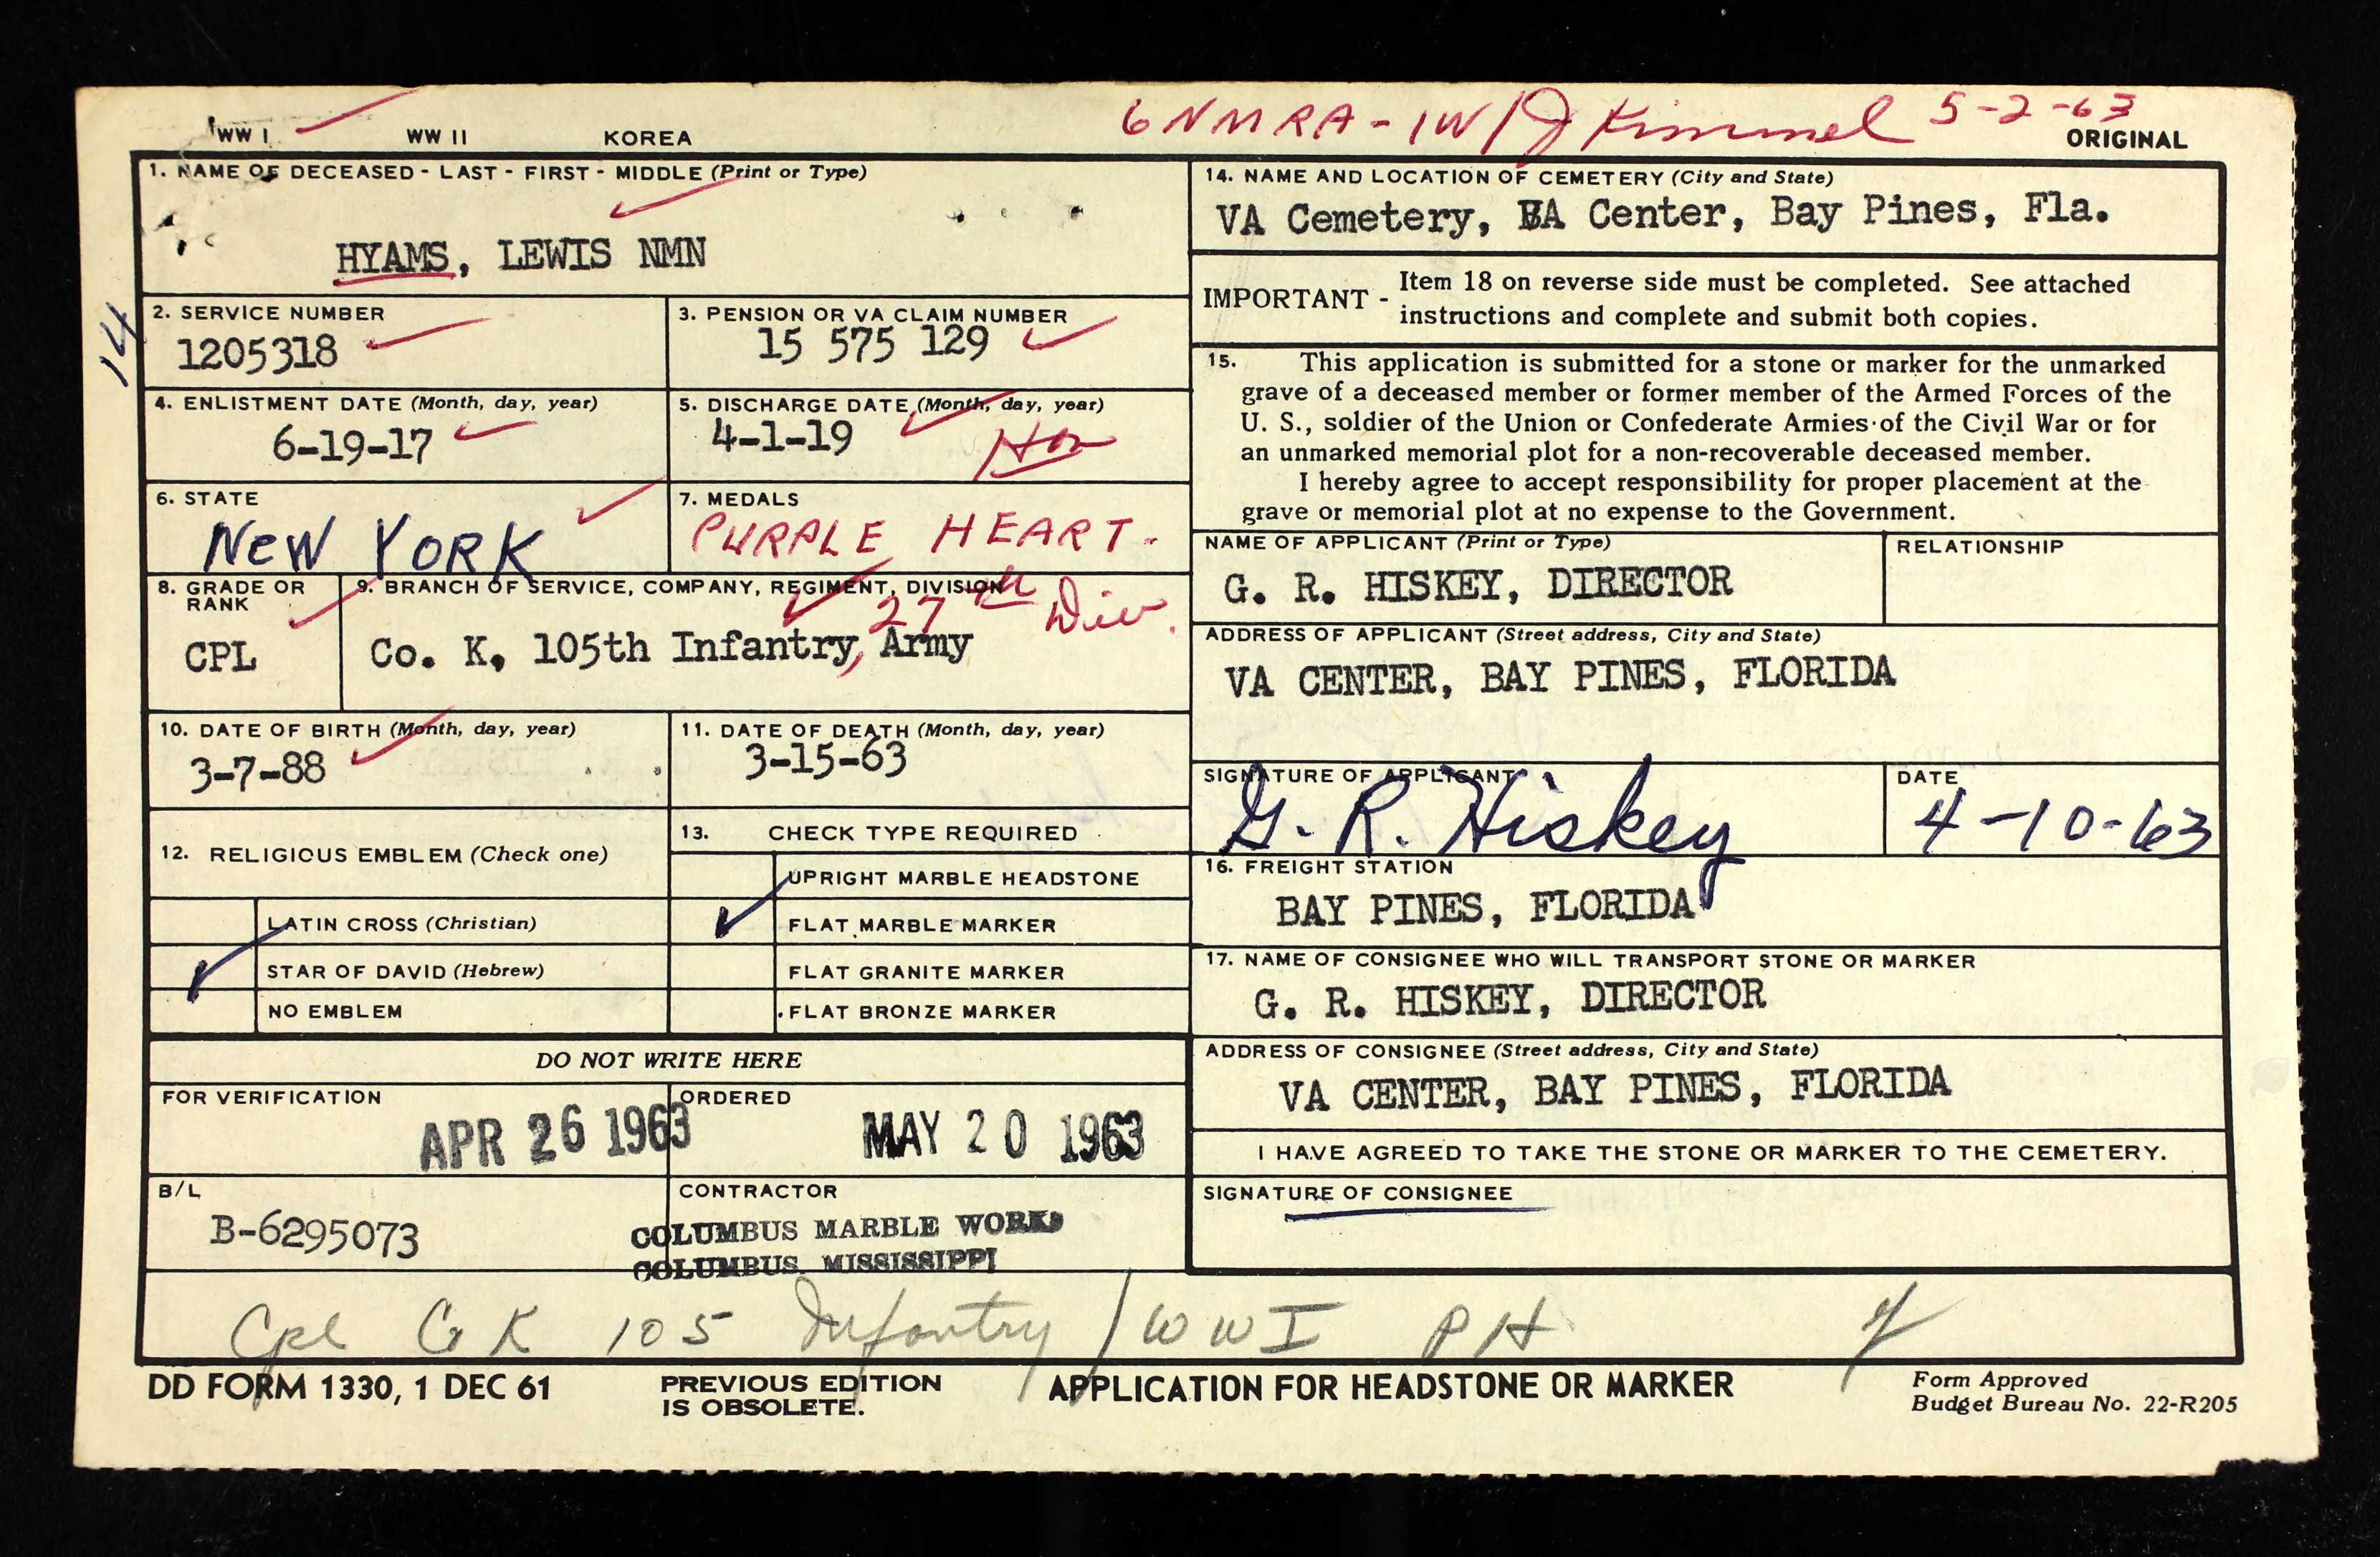 WW I WW II KOREA
6NMRA-1W/J Kimmel 5-2-63
ORIGINAL
1. NAME OF DECEASED - LAST - FIRST - MIDDLE (Print or Type)
HYAMS, LEWIS NMN
14
2. SERVICE NUMBER
1205318
3. PENSION OR VA CLAIM NUMBER
15 575 129
4. ENLISTMENT DATE (Month, day, year)
6-19-17
5. DISCHARGE DATE (Month, day, year)
4-1-19
Hon
6. STATE
NEW YORK
7. MEDALS
PURPLE HEART.
8. GRADE OR
RANK
CPL
9. BRANCH OF SERVICE, COMPANY, REGIMENT, DIVISION
27th Div.
Co. K, 105th Infantry, Army
10. DATE OF BIRTH (Month, day, year)
3-7-88
11. DATE OF DEATH (Month, day, year)
3-15-63
12. RELIGIOUS EMBLEM (Check one)
LATIN CROSS (Christian)
STAR OF DAVID (Hebrew)
NO EMBLEM
13. CHECK TYPE REQUIRED
UPRIGHT MARBLE HEADSTONE
FLAT MARBLE MARKER
FLAT GRANITE MARKER
FLAT BRONZE MARKER
DO NOT WRITE HERE
FOR VERIFICATION
APR 26 1963
ORDERED
MAY 20 1963
B/L
B-6295073
CONTRACTOR
COLUMBUS MARBLE WORKS
COLUMBUS MISSISSIPPI
14. NAME AND LOCATION OF CEMETERY (City and State)
VA Cemetery, VA Center, Bay Pines, Fla.
IMPORTANT - Item 18 on reverse side must be completed. See attached
instructions and complete and submit both copies.
15. This application is submitted for a stone or marker for the unmarked
grave of a deceased member or former member of the Armed Forces of the
U. S., soldier of the Union or Confederate Armies of the Civil War or for
an unmarked memorial plot for a non-recoverable deceased member.
I hereby agree to accept responsibility for proper placement at the
grave or memorial plot at no expense to the Government.
NAME OF APPLICANT (Print or Type)
G. R. HISKEY, DIRECTOR
RELATIONSHIP
ADDRESS OF APPLICANT (Street address, City and State)
VA CENTER, BAY PINES, FLORIDA
SIGNATURE OF APPLICANT
G. R. Hiskey
DATE
4-10-63
16. FREIGHT STATION
BAY PINES, FLORIDA
17. NAME OF CONSIGNEE WHO WILL TRANSPORT STONE OR MARKER
G. R. HISKEY, DIRECTOR
ADDRESS OF CONSIGNEE (Street address, City and State)
VA CENTER, BAY PINES, FLORIDA
I HAVE AGREED TO TAKE THE STONE OR MARKER TO THE CEMETERY.
SIGNATURE OF CONSIGNEE
Cpl Co K 105 Infantry / WW I PH
DD FORM 1330, 1 DEC 61
PREVIOUS EDITION
IS OBSOLETE.
APPLICATION FOR HEADSTONE OR MARKER
Form Approved
Budget Bureau No. 22-R205